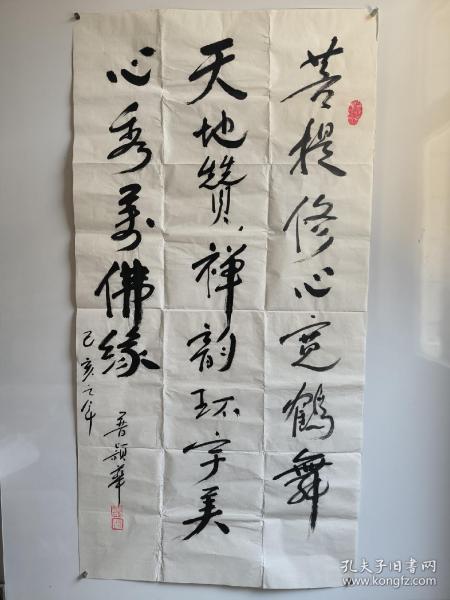 菩提修心宽鹤舞
天地赞禅韵环宇美
心秀万佛缘
己亥之年
晋颖华
孔夫子旧书网
www.kongfz.com